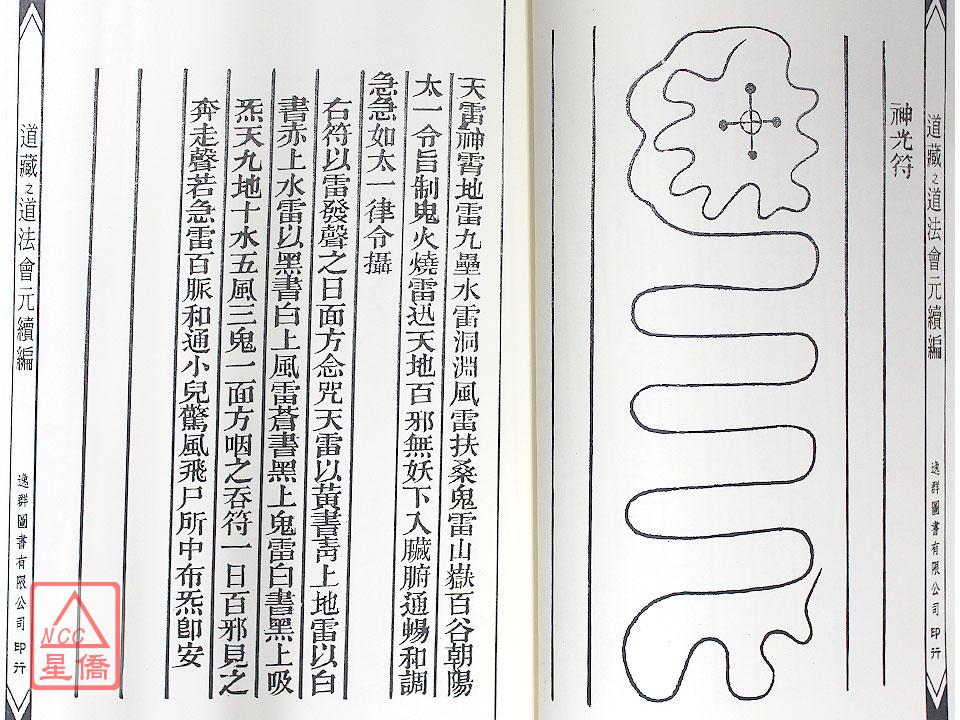 道藏之道法會元續編
逸群圖書有限公司 印行
神光符
天雷神霄地雷九壘水雷洞淵風雷扶桑鬼雷山嶽百谷朝陽
太一令旨制鬼火燒雷迅天地百邪無妖下入臟腑通暢和調
急急如太一律令攝
右符以雷發聲之日面方念咒天雷以黃書青上地雷以白
書赤上水雷以黑書白上風雷蒼書黑上鬼雷白書黑上吸
炁天九地十水五風三鬼一面方咽之吞符一日百邪見之
奔走聲若急雷百脈和通小兒驚風飛尸所中布炁即安
道藏之道法會元續編
逸群圖書有限公司 印行
NCC
星僑